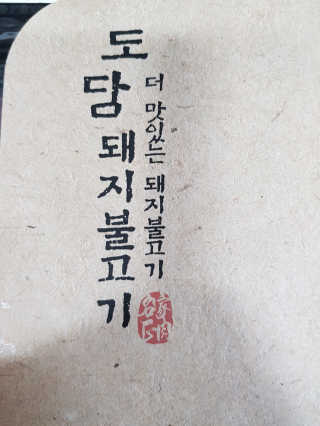 도담 돼지불고기
더 맛있는 돼지불고기